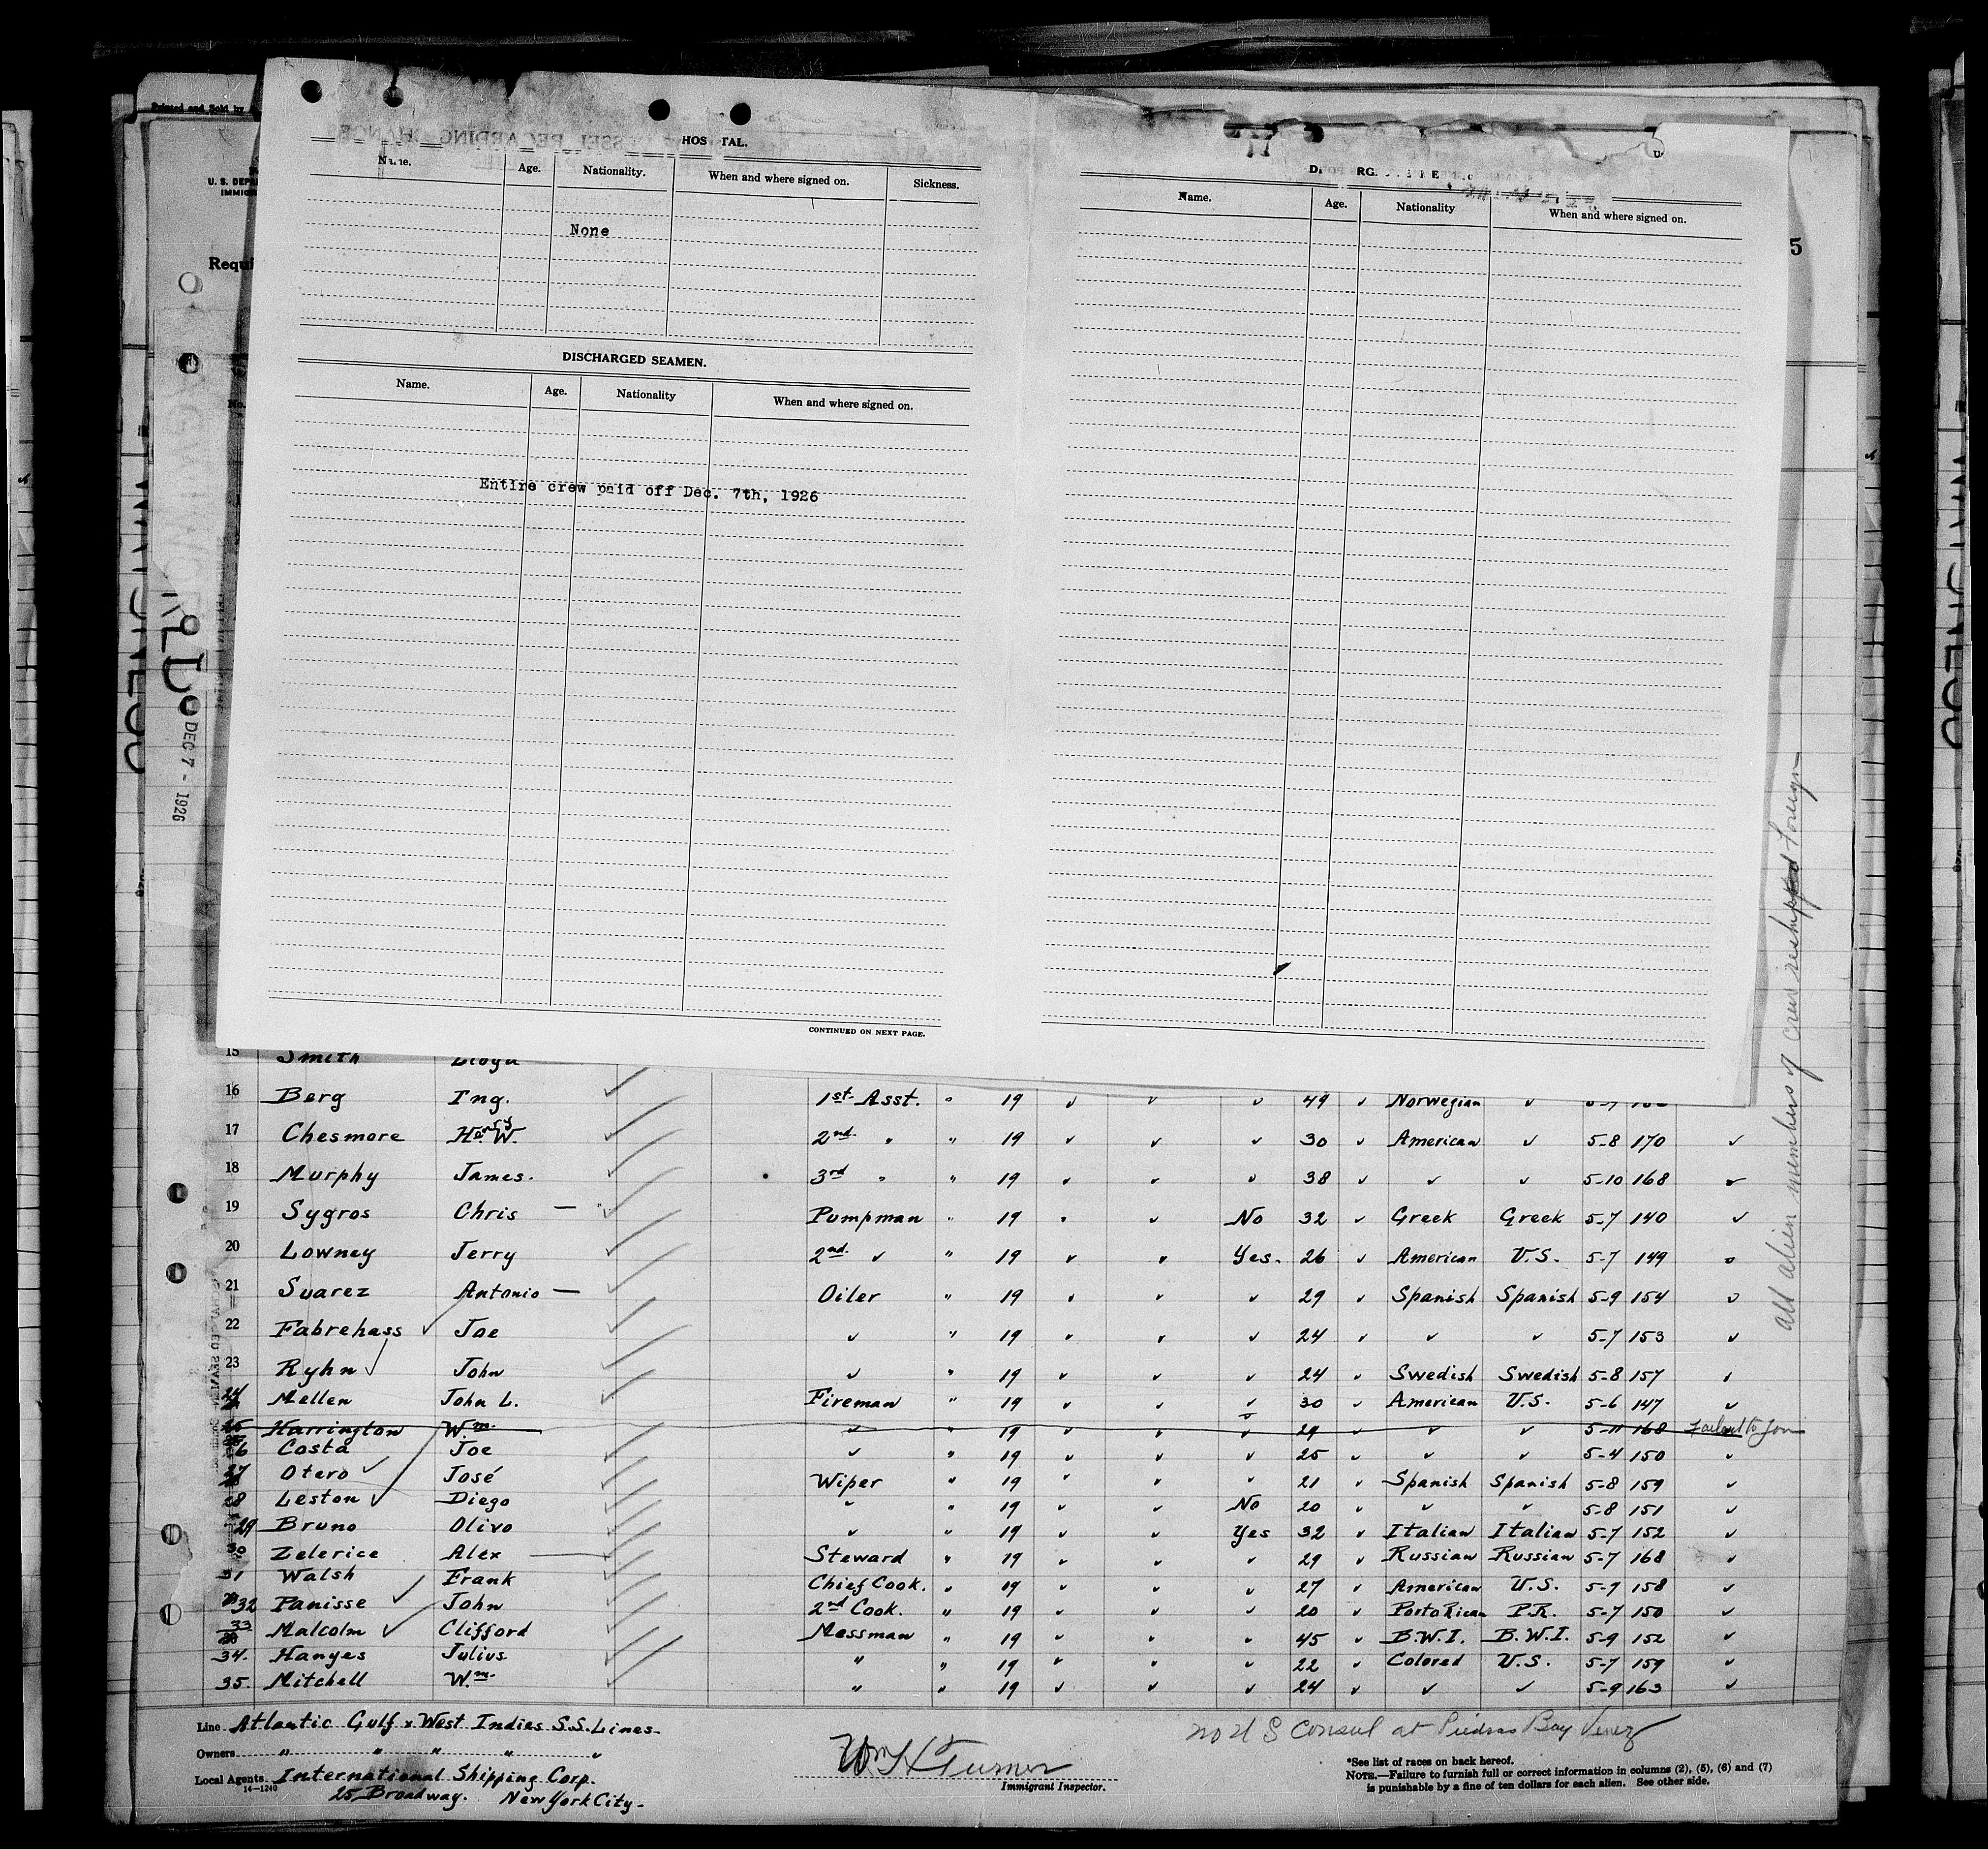 Printed and Sold by
U. S. DEPA
IMMIG
Requi
No.
5
HOS TAL.
Name. Age. Nationality. When and where signed on. Sickness.
None
DISCHARGED SEAMEN.
Name. Age. Nationality When and where signed on.
Entire crew paid off Dec. 7th, 1926
CONTINUED ON NEXT PAGE.
Name. Age. Nationality When and where signed on.
DEC 7 - 1926
all alien members of crew reshipped foreign
15 Smith Lloyd
16 Berg Ing. 1st Asst. " 19 ✓ ✓ ✓ 49 ✓ Norwegian ✓
17 Chesmore Harry W. 2nd " " 19 ✓ ✓ ✓ 30 ✓ American ✓ 5-8 170 ✓
18 Murphy James. 3rd " " 19 ✓ ✓ ✓ 38 ✓ ✓ ✓ 5-10 168 ✓
19 Sygros Chris — Pumpman " 19 " ✓ No 32 ✓ Greek Greek 5-7 140 ✓
20 Lowney Jerry 2nd ✓ " 19 ✓ " Yes. 26 ✓ American U.S. 5-7 149
21 Suarez Antonio — Oiler " 19 ✓ ✓ ✓ 29 ✓ Spanish Spanish 5-9 154 ✓
22 Fabrehass ✓ Joe ✓ " 19 ✓ ✓ ✓ 24 ✓ ✓ ✓ 5-7 153 ✓
23 Ryhn ✓ John ✓ " 19 ✓ ✓ ✓ 24 ✓ Swedish Swedish 5-8 157
24 Mellen John L. Fireman " 19 ✓ ✓ ✓ 30 ✓ American U.S. 5-6 147 ✓
25 Harrington Wm. ✓ " 19 ✓ ✓ ✓ 29 ✓ ✓ ✓ 5-11 168 Failed to Join
26 Costa Joe ✓ " 19 ✓ ✓ ✓ 25 ✓ ✓ ✓ 5-4 150 ✓
27 Otero ✓ José Wiper " 19 ✓ " ✓ 21 ✓ Spanish Spanish 5-8 159 ✓
28 Leston ✓ Diego " " 19 ✓ ✓ No 20 ✓ ✓ ✓ 5-8 151 ✓
29 Bruno Olivo ✓ " 19 ✓ ✓ Yes 32 ✓ Italian Italian 5-7 152 ✓
30 Zelerice Alex — Steward " 19 ✓ ✓ ✓ 29 ✓ Russian Russian 5-7 168 ✓
31 Walsh Frank Chief Cook. " 19 ✓ ✓ ✓ 27 ✓ American U.S. 5-7 158 ✓
32 Panisse ✓ John 2nd Cook. " 19 ✓ ✓ ✓ 20 ✓ Porto Rican P.R. 5-7 150 ✓
33 Malcolm ✓ Clifford Messman " 19 ✓ ✓ ✓ 45 ✓ B.W.I. B.W.I. 5-9 152 ✓
34. Hanyes Julius " " 19 ✓ ✓ ✓ 22 ✓ Colored U.S. 5-7 159 ✓
35. Mitchell Wm. " " 19 ✓ ✓ ✓ 24 ✓ ✓ ✓ 5-9 163 ✓
Line Atlantic Gulf & West Indies S.S. Lines.
Owners " " " " "
Local Agents International Shipping Corp.
14-1240
25, Broadway. New York City.
Wm H Turner
Immigrant Inspector.
no U S Consul at Piedras Bay Venez
*See list of races on back hereof.
NOTE.—Failure to furnish full or correct information in columns (2), (5), (6) and (7)
is punishable by a fine of ten dollars for each alien. See other side.